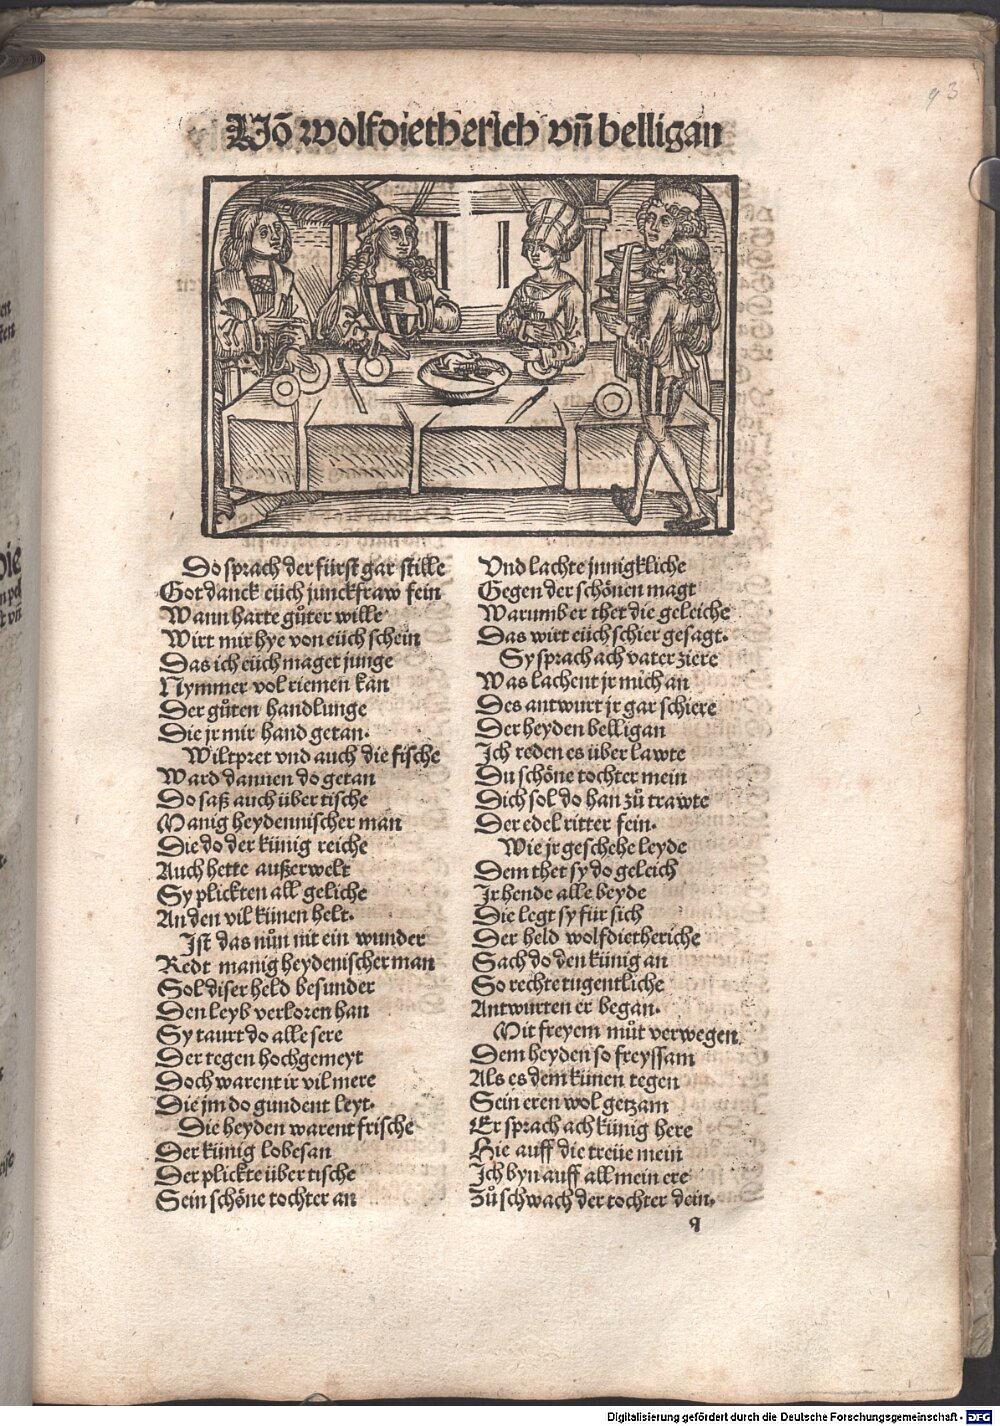 93
Võ wolfdietherich vñ belligan
Do sprach der fürst gar stille
Got danck eüch junckfraw fein
Wann harte gůter wille
Wirt mir hye von eüch schein
Das ich eüch maget junge
Nymmer vol riemen kan
Der gůten handlunge
Die jr mir hand getan.
Wiltpret vnd auch die fische
Ward dannen do getan
Do saß auch über tische
Manig heydennischer man
Die do der künig reiche
Auch hette außerwelt
Sy plickten all geliche
An den vil künen helt.
Ist das nůn nit ein wunder
Redt manig heydenischer man
Sol diser held besunder
Den leyb verloren han
Sy taurt do alle sere
Der tegen hochgemeyt
Doch warent ir vil mere
Die jm do gundent leyt.
Die heyden warent frische
Der künig lobesan
Der plickte über tische
Sein schöne tochter an
Vnd lachte jnnigkliche
Gegen der schönen magt
Warumb er thet die geleiche
Das wirt eüch schier gesagt.
Sy sprach ach vater ziere
Was lachent jr mich an
Des antwurt jr gar schiere
Der heyden belligan
Ich reden es über lawte
Du schöne tochter mein
Dich sol do han zů trawte
Der edel ritter fein.
Wie jr geschehe leyde
Dem thet sy do geleich
Ir hende alle beyde
Die legt sy für sich
Der held wolfdietheriche
Sach do den künig an
So rechte tugentliche
Antwurten er began.
Mit freyem můt verwegen
Dem heyden so freyssam
Als es dem künen tegen
Sein eren wol getzam
Er sprach ach künig here
Hie auff die treüe mein
Ich byn auff all mein ere
Zů schwach der tochter dein.
q
Digitalisierung gefördert durch die Deutsche Forschungsgemeinschaft - DFG